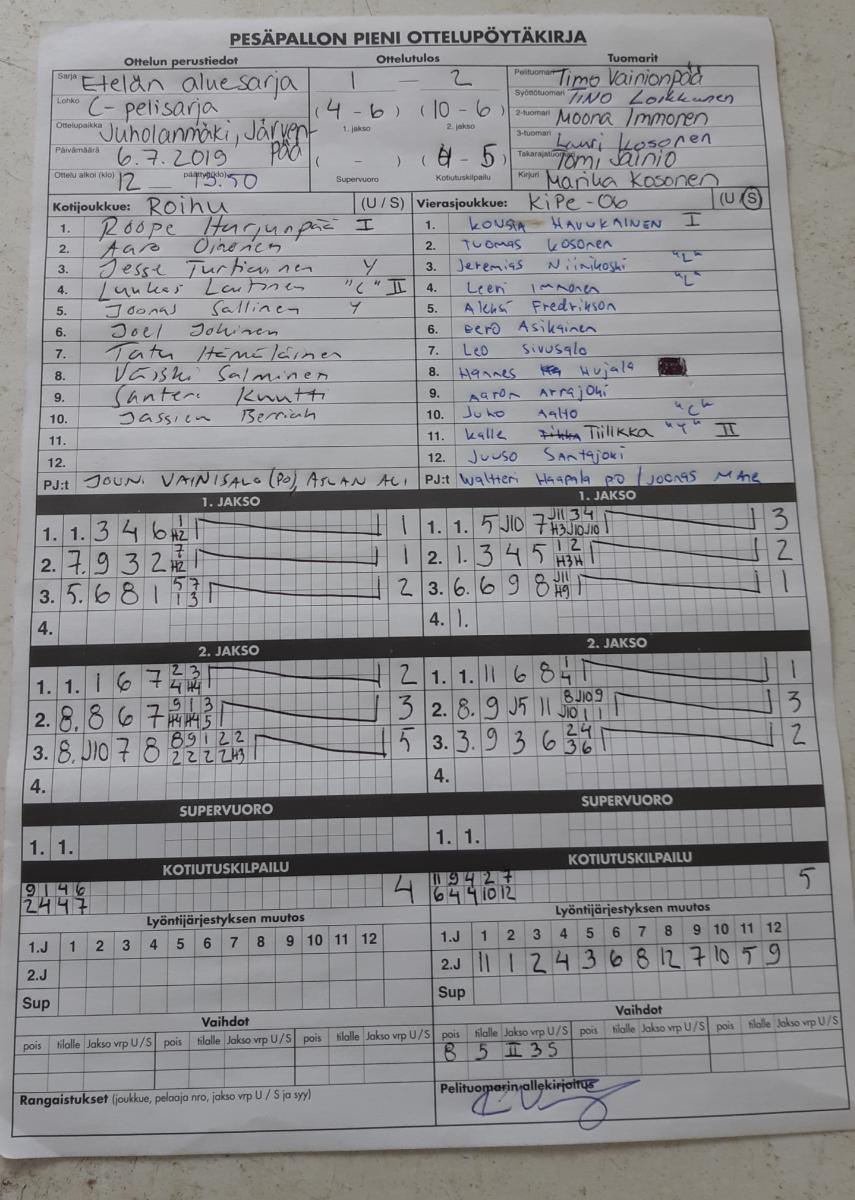 PESÄPALLON PIENI OTTELUPÖYTÄKIRJA
Ottelun perustiedot Ottelutulos Tuomarit
Sarja Etelän aluesarja 1 — 2 Pelituomari Timo Vainionpää
Lohko C-pelisarja (4-6) (10-6) Syöttötuomari TINO Loikkanen
Ottelupaikka Juholanmäki, Järvenpää 1. jakso 2. jakso 2-tuomari Moona Immonen
3-tuomari Lauri Kosonen
Päivämäärä 6.7.2019 ( - ) (4-5) Takarajatuomari Tomi Jainio
Ottelu alkoi (klo) 12 — päättyi (klo) 13.50 Supervuoro Kotiutuskilpailu Kirjuri Marika Kosonen
Kotijoukkue: Roihu (U / S) Vierasjoukkue: KiPe-06 (U / S)
1. Roope Harjunpää I 1. KONSTA HAVUKAINEN I
2. Aaro Oinonen 2. TUOMAS KOSONEN
3. Jesse Turtiainen Y 3. Jeremias Niinikoski "L"
4. Luukas Laitinen "C" II 4. Leevi Immonen "L"
5. Joonas Sallinen Y 5. Aleksi Fredrikson
6. Joel Johinen 6. Eero Asikainen
7. Tatu Hämäläinen 7. Leo Sivusalo
8. Väiski Salminen 8. Hannes Hujala
9. Santeri Knuutti 9. Aaron Arrajoki
10. Jassien Berriah 10. Juho Aalto "C"
11. 11. Kalle Tiilikka "Y" II
12. 12. Juuso Santajoki
PJ:t JOUNI VAINISALO (PO), ASLAN ALI PJ:t Waltteri Haapala PO / JOONAS
1. JAKSO 1. JAKSO
1. 1. 3 4 6 1 H2 1 1. 1. 5 J10 7 J11 3 4 H3 J10 J10 3
2. 7. 9 3 2 7 H2 1 2. 1. 3 4 5 1 2 H3 H 2
3. 5. 6 8 1 5 7 1 3 2 3. 6. 6 9 8 J11 H9 1
4. 4. 1.
2. JAKSO 2. JAKSO
1. 1. 1 6 7 2 3 4 H4 2 1. 1. 11 6 8 1 4 1
2. 8. 8 6 7 9 1 3 H4 H4 5 3 2. 8. 9 J5 11 8 J10 9 J10 1 1 3
3. 8. J10 7 8 8 9 1 2 2 2 2 2 2 H3 5 3. 3. 9 3 6 2 4 3 6 2
4. 4.
SUPERVUORO SUPERVUORO
1. 1. 1. 1.
KOTIUTUSKILPAILU KOTIUTUSKILPAILU
9 1 4 6 4 11 9 4 2 7 5
2 4 4 7 6 4 9 10 12
Lyöntijärjestyksen muutos Lyöntijärjestyksen muutos
1.J 1 2 3 4 5 6 7 8 9 10 11 12 1.J 1 2 3 4 5 6 7 8 9 10 11 12
2.J 2.J 11 1 2 4 3 6 8 12 7 10 5 9
Sup Sup
Vaihdot Vaihdot
pois tilalle Jakso vrp U / S pois tilalle Jakso vrp U / S pois tilalle Jakso vrp U / S pois tilalle Jakso vrp U / S pois tilalle Jakso vrp U / S pois tilalle Jakso vrp U / S
8 5 II 3 S
Rangaistukset (joukkue, pelaaja nro, jakso vrp U / S ja syy) Pelituomarin allekirjoitus